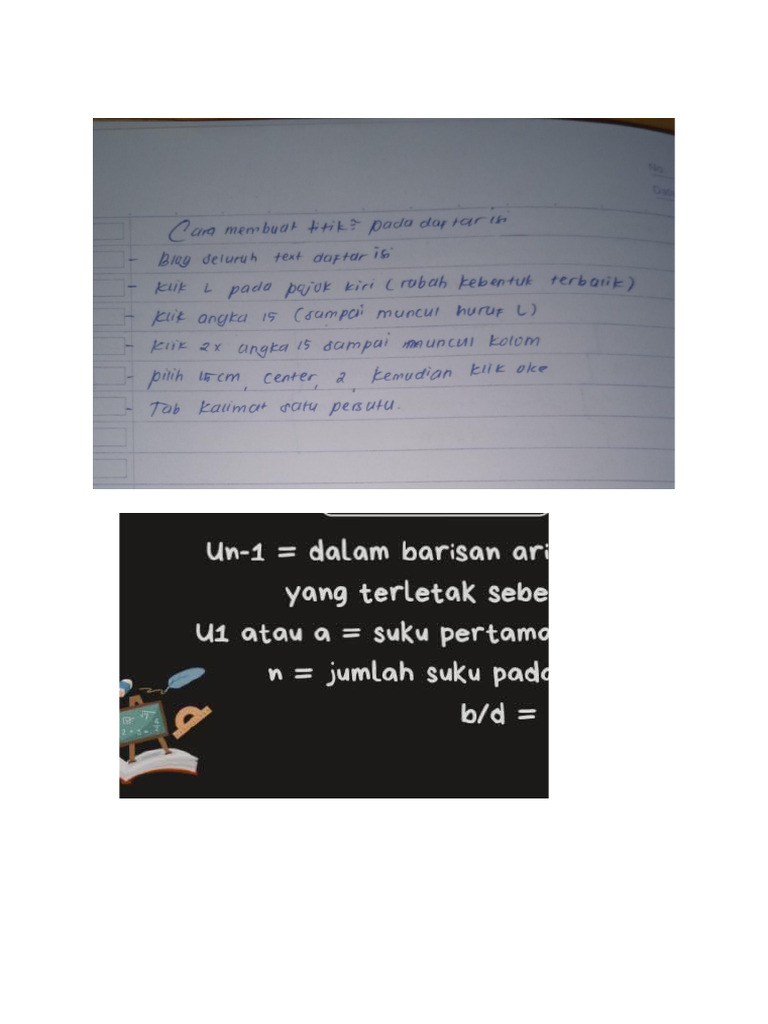 No
Cara membuat titik² pada daftar isi
- Blog seluruh text daftar isi
- Klik L pada pojok kiri (rubah kebentuk terbalik)
- Klik angka 15 (sampai muncul huruf L)
- Klik 2x angka 15 sampai muncul kolom
- pilih 15cm, center, 2, kemudian klik oke
- Tab kalimat satu persatu.
Un-1 = dalam barisan ari
yang terletak sebe
U1 atau a = suku pertama
n = jumlah suku pada
b/d =